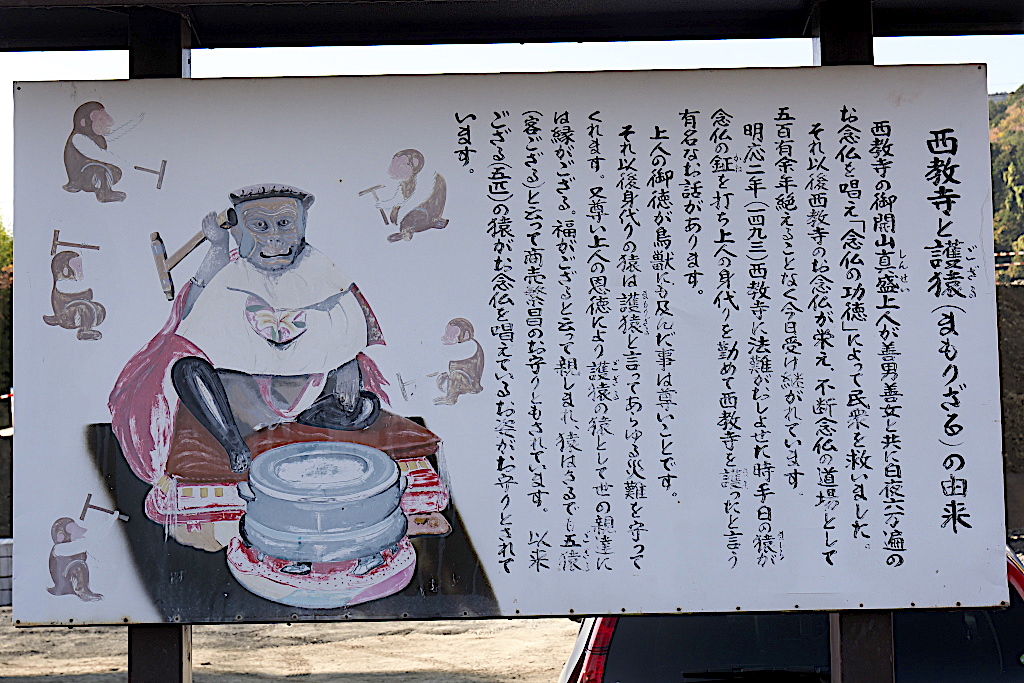 西教寺と護猿(まもりざる)の由来
ござる
西教寺の御開山真盛上人が善男善女と共に日夜六万遍の
しんせい
お念仏を唱え「念仏の功徳」によって民衆を救いました。
それ以後西教寺のお念仏が栄え、不断念仏の道場として
五百有余年絶えることなく今日受け継がれています。
明応二年(一四九三)西教寺に法難がおしよせた時手白の猿が
念仏の鉦を打ち上人の身代りを勤めて西教寺を護ったと言う
かね
有名なお話があります。
上人の御徳が鳥獣にも及んだ事は尊いことです。
それ以後身代りの猿は護猿と言ってあらゆる災難を守って
まもりざる
くれます。又尊い上人の恩徳により護猿の猿として世の親達に
ござる
は縁がござる。福がござると云って親しまれ、猿はさるでも五猿
ござる
(客ござる)と云って商売繁昌のお守りともされています。 以来
ござる(五匹)の猿がお念仏を唱えているお姿がお守りとされて
います。